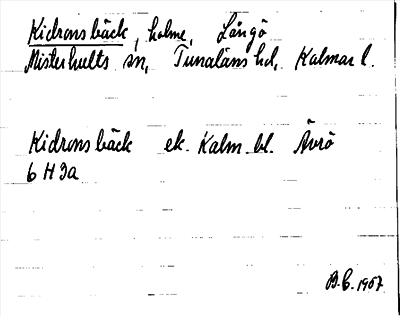 Kidronsbäck, holme, Långö
Misterhults sn, Tunaläns hd, Kalmar l.
Kidronsbäck ek. Kalm. bl. Ävrö
6 H 3a
B.C. 1967